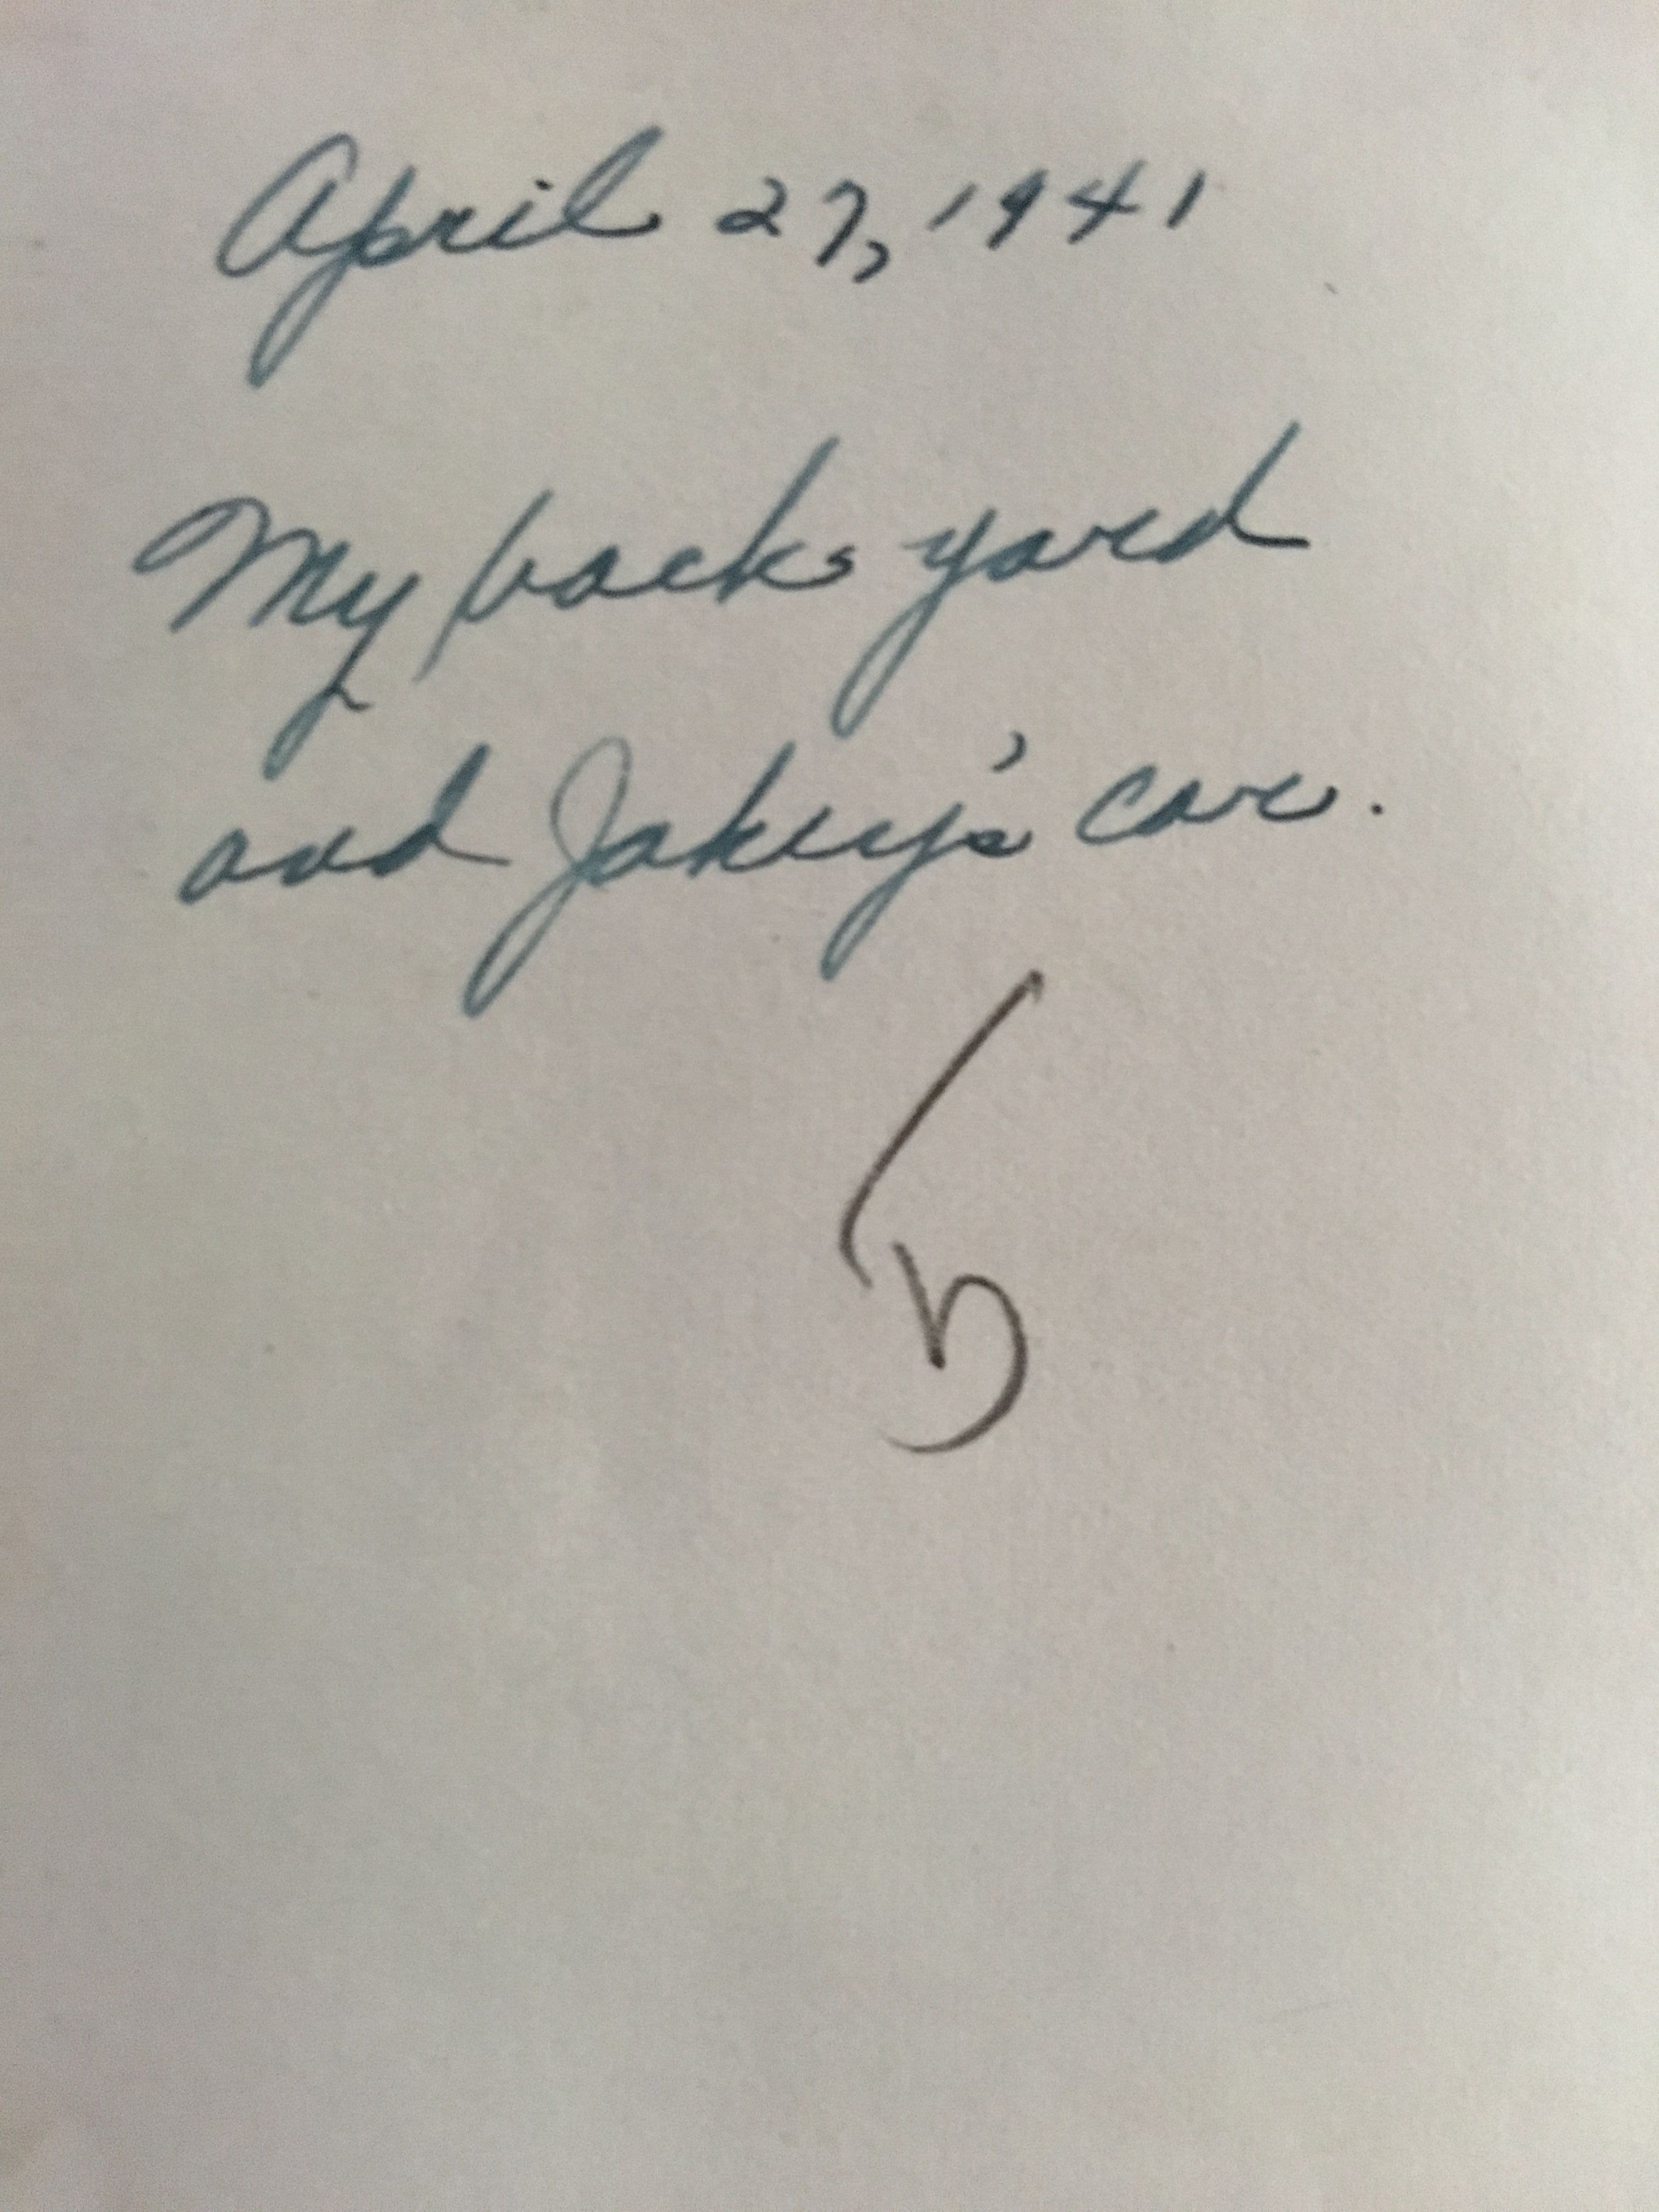 April 27, 1941
My back yard
and Jakey's car.